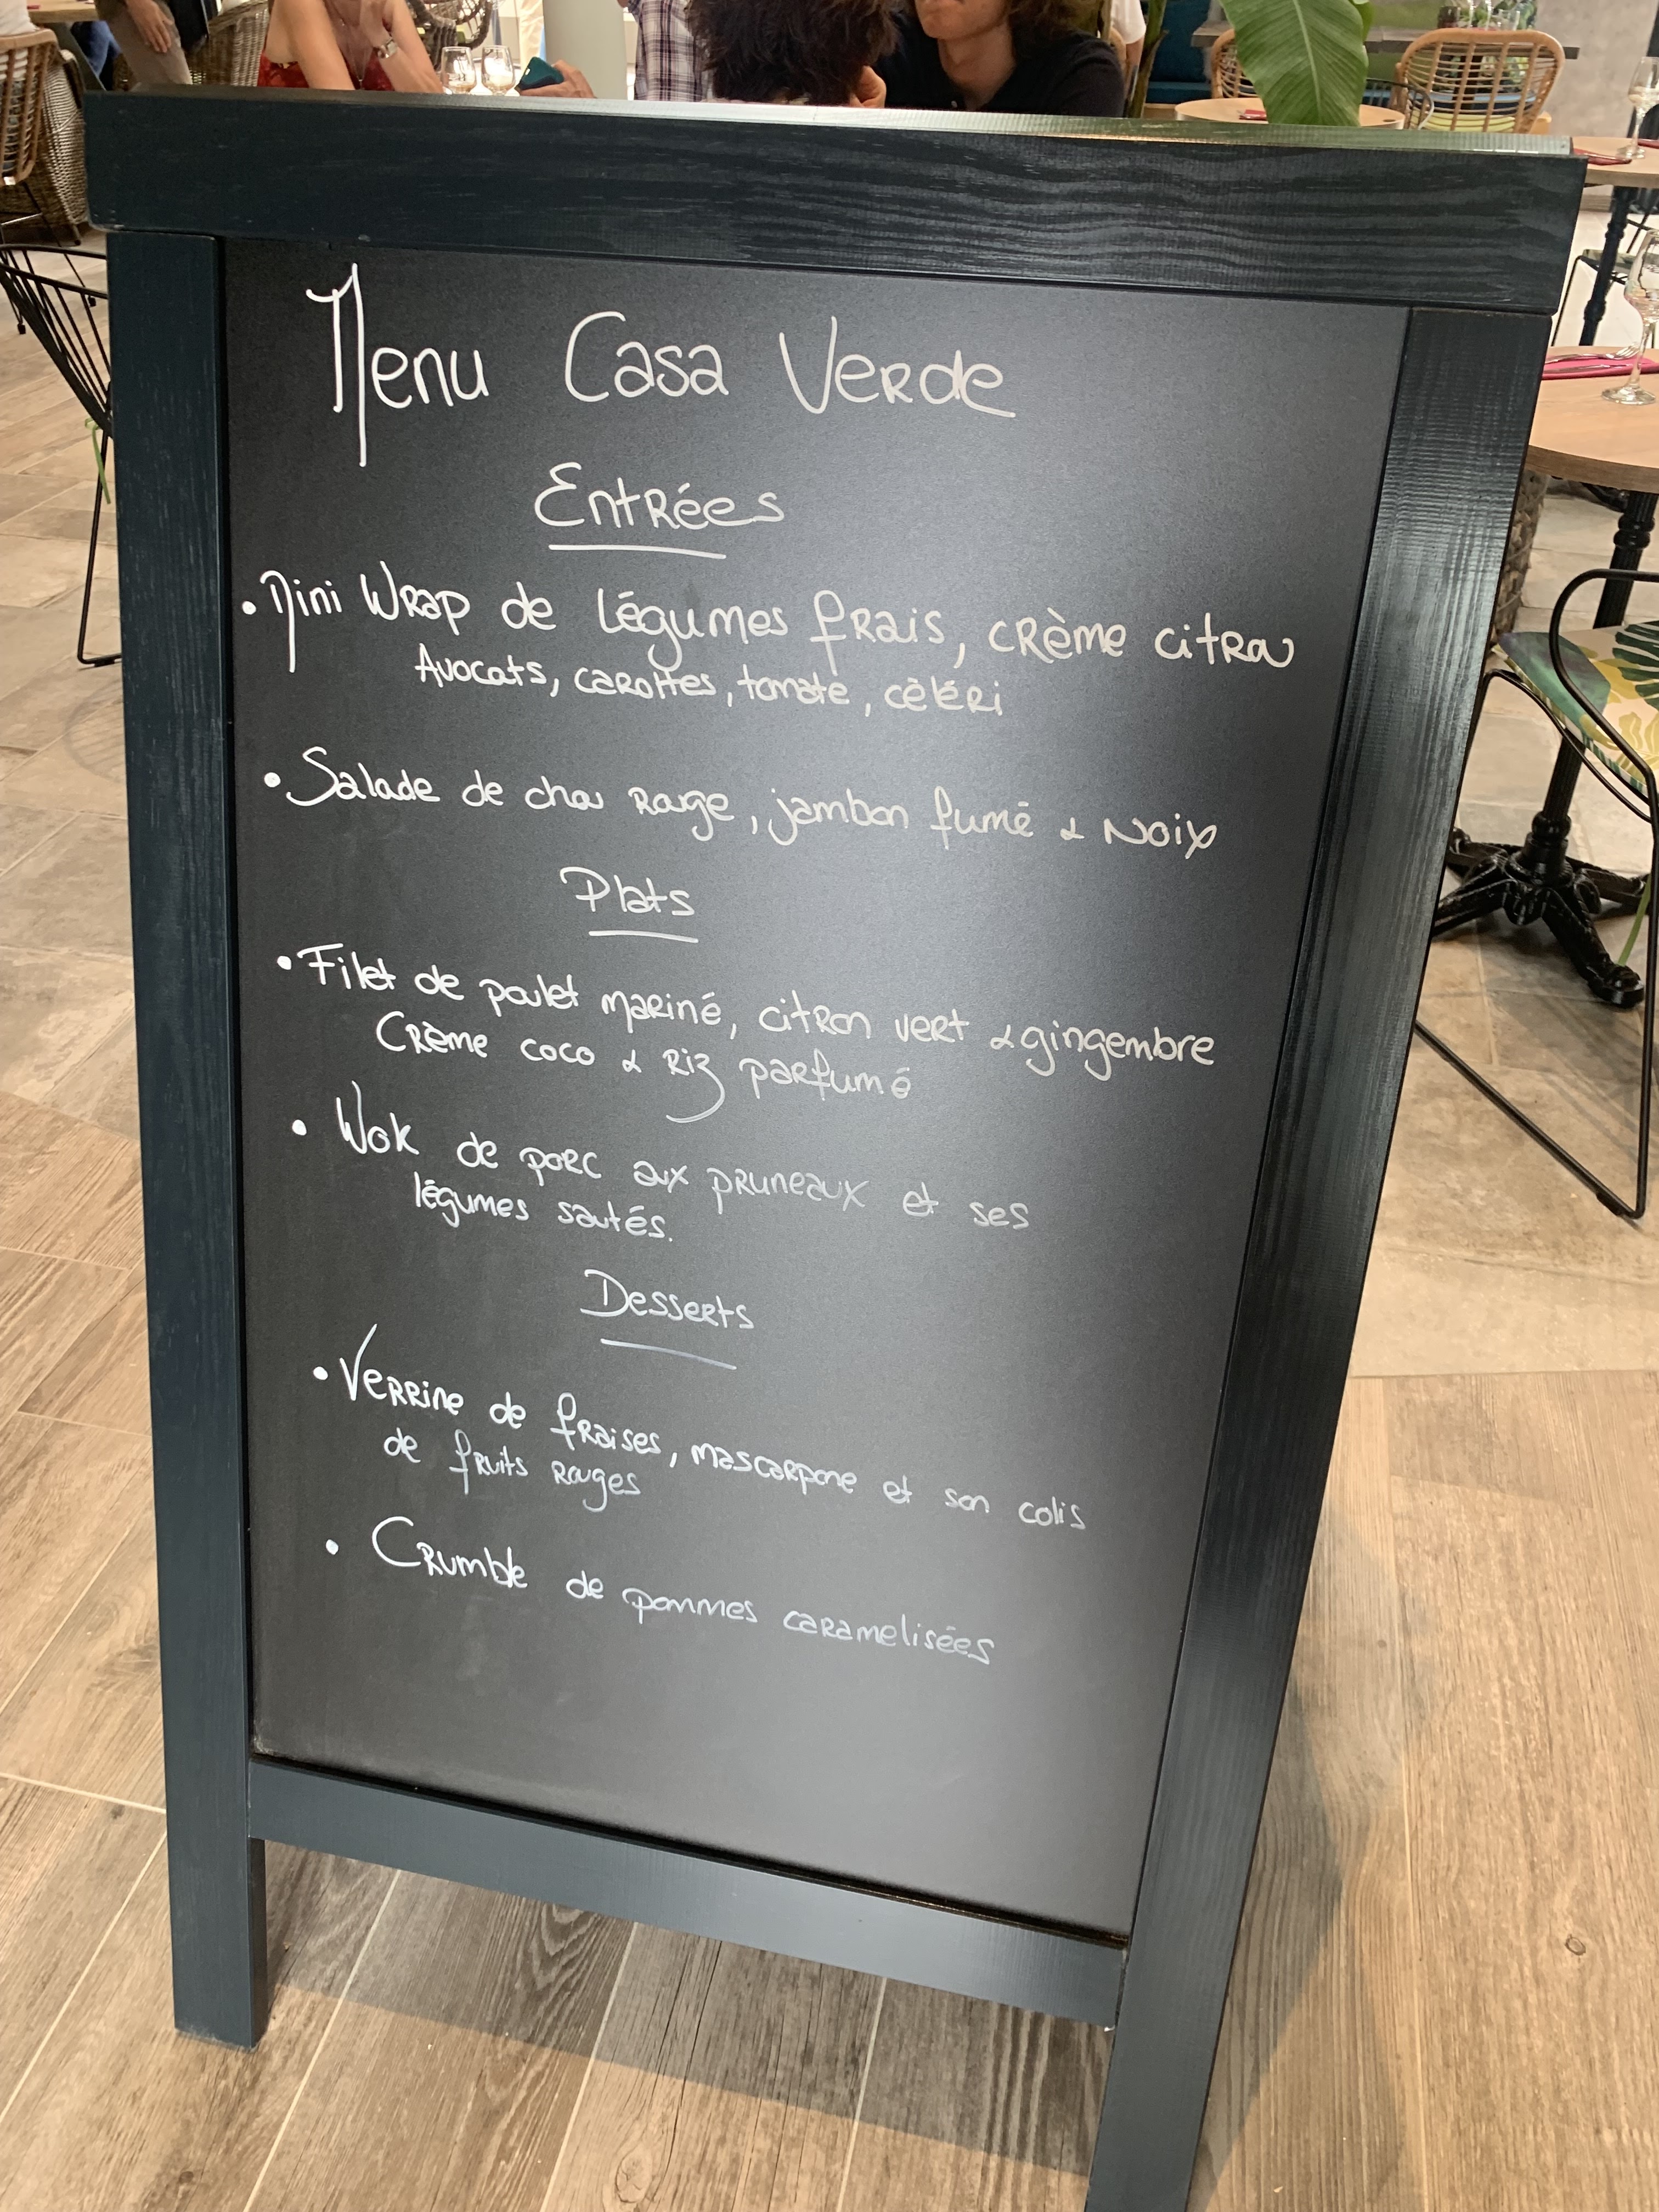 Menu Casa Verde
Entrées
• Mini Wrap de légumes frais, crème citron
Avocats, carottes, tomate, céléri
• Salade de chou rouge, jambon fumé & Noix
Plats
• Filet de poulet mariné, citron vert & gingembre
Crème coco & riz parfumé
• Wok de porc aux pruneaux et ses
légumes sautés.
Desserts
• Verrine de fraises, mascarpone et son colis
de fruits rouges
• Crumble de pommes caramelisées